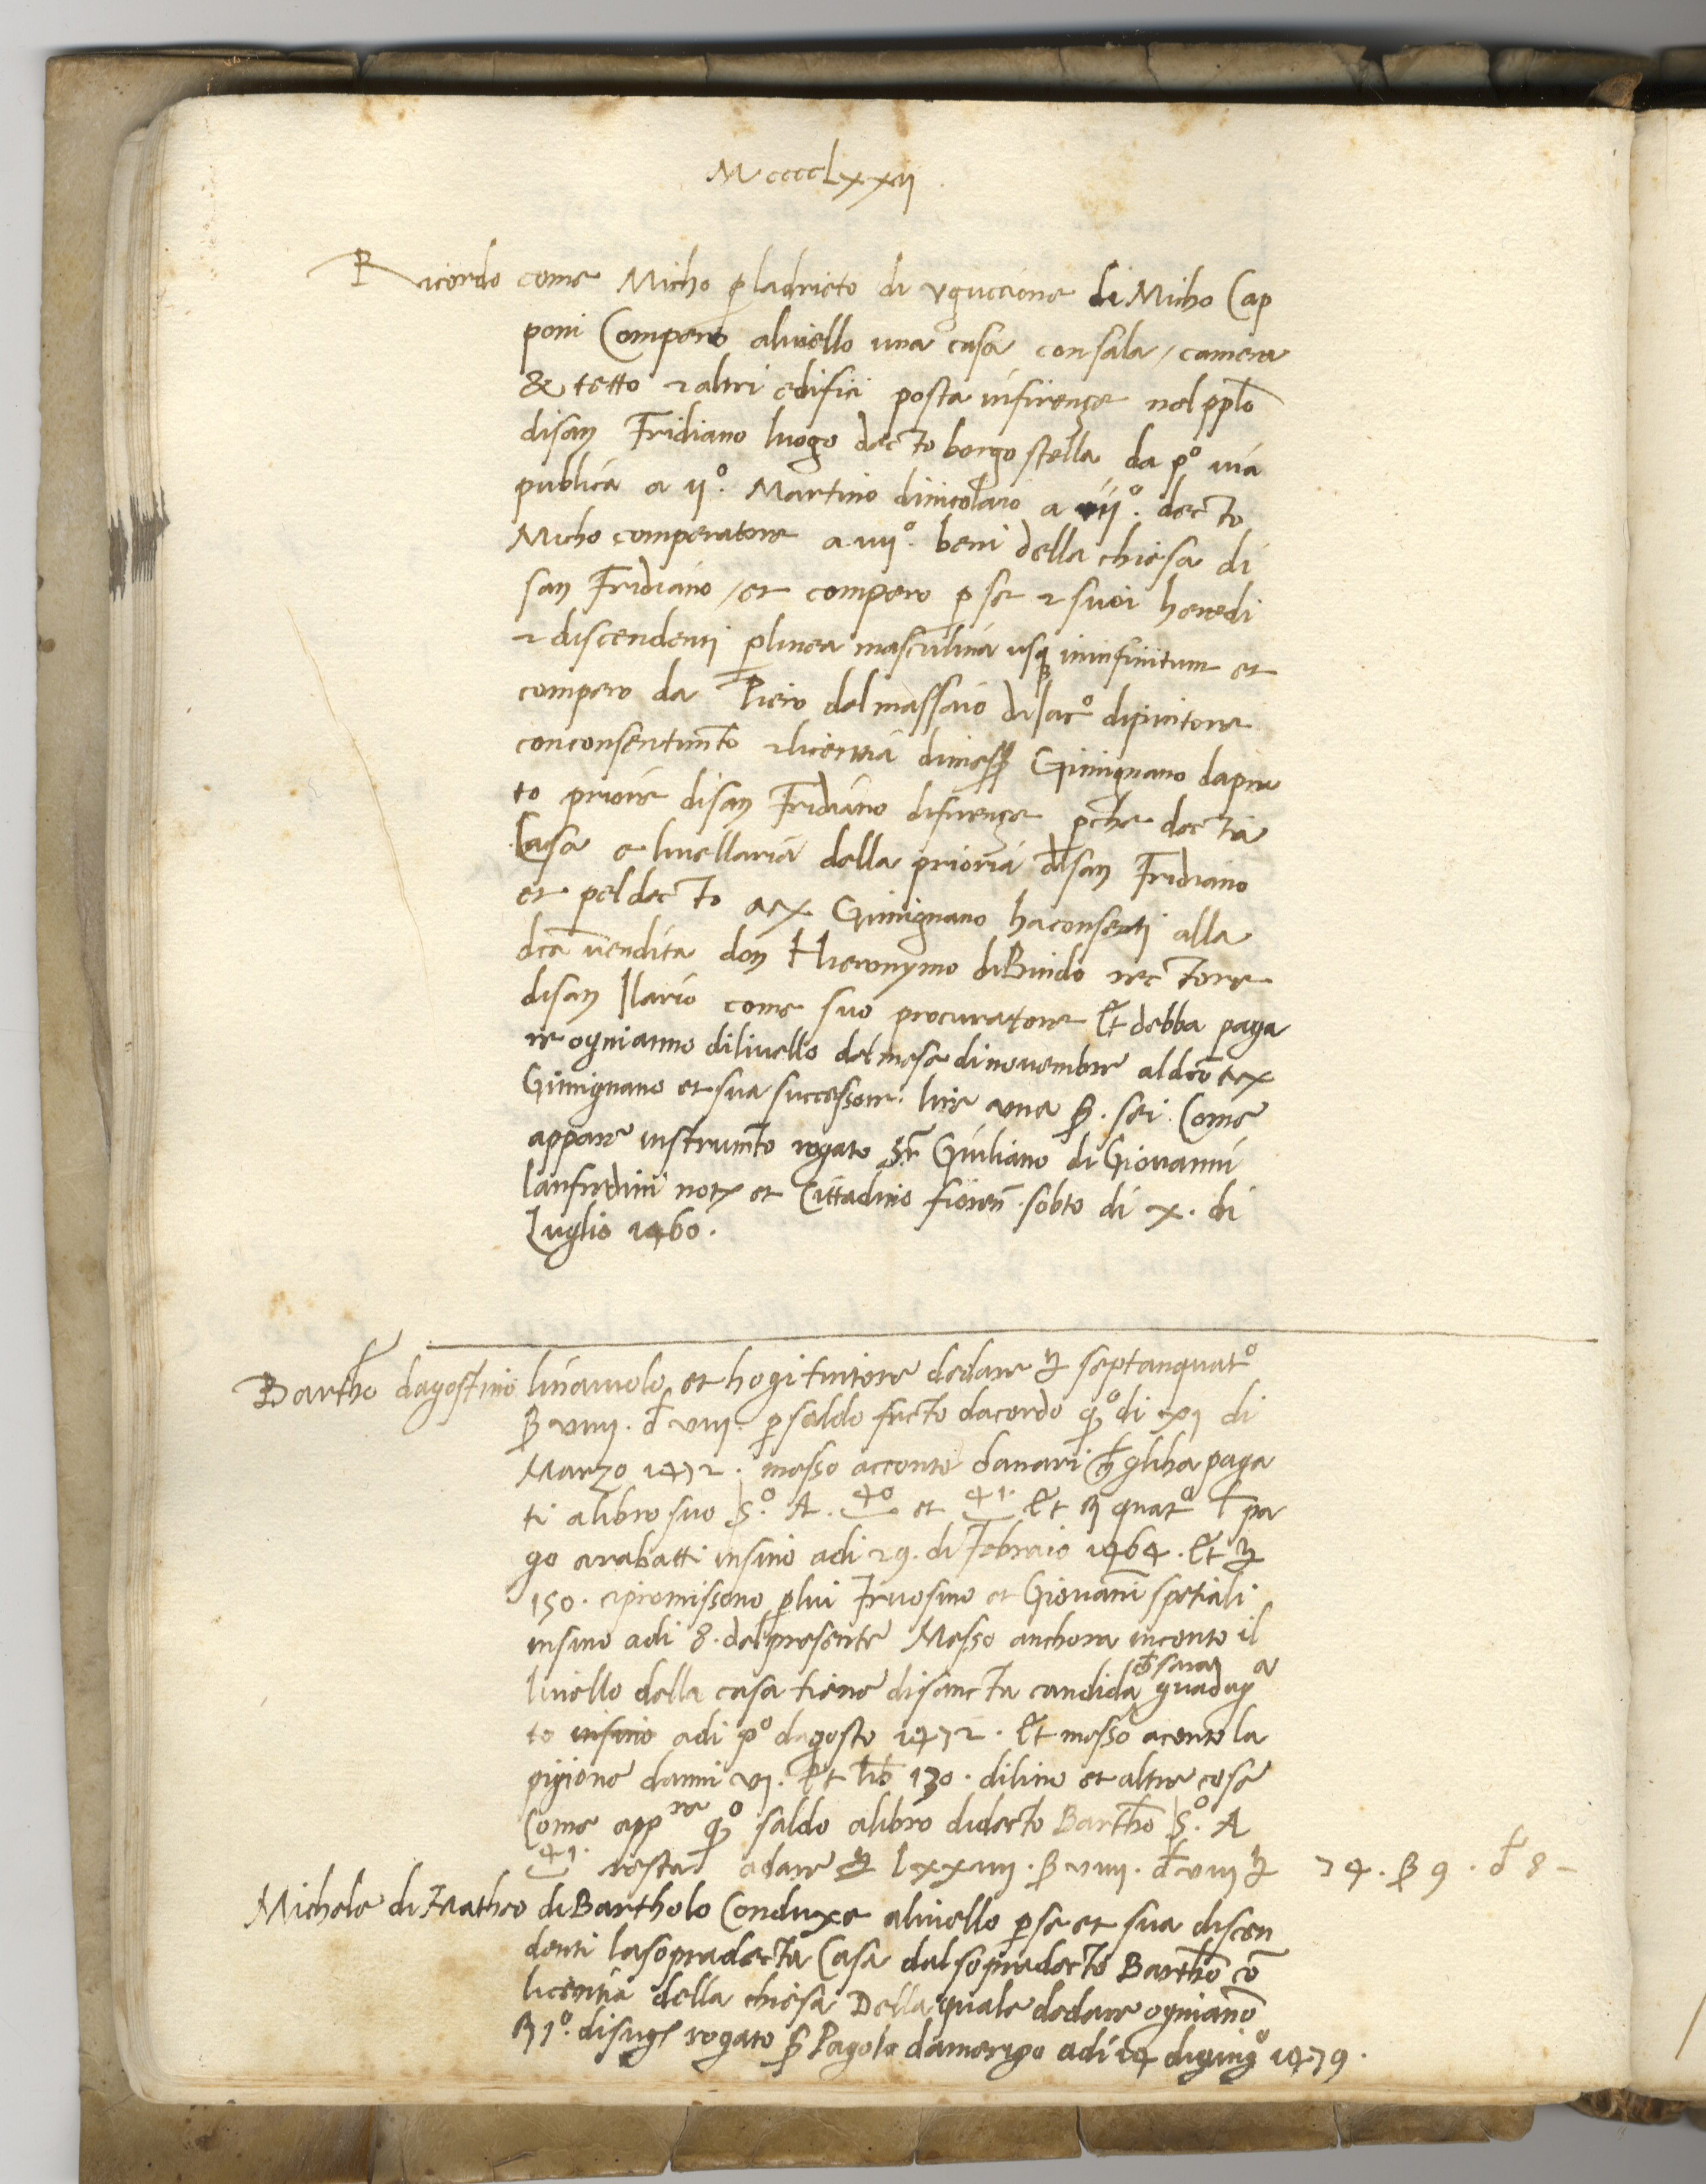 MccccLxxij
Ricordo come Micho p ladrieto di vguccione di Micho Cap
poni Compero aliuello una casa con sala / camera
& tetto & altri edifici posta in firençe nel pplo
di san Fridiano luogo decto borgo stella da po uia
publica a ijo. Martino di nicolaio a iijo. decto
Micho comperatore a iiijo. beni della chiesa di
san Fridiano / et compero p se & suoi heredi
& discendenti p linea masculina usq in infinitum et
compero da Piero del massaio di Jaco dipintore
con consentimto & licentia di mess Gimignano da pra
to priore di san Fridiano di firençe p che decta
Casa e liuellaria della prioria di san Fridiano
et pel decto Gimignano ha consenti alla
dca uendita don Hieronymo di Bindo rectore
di san Ilario come suo procuratore Et debba paga
re ogni anno di liuello del mese di nouembre al dco
Gimignano et sua successore. lire una ß. sei. Come
appare instrumto rogato Sr Giuliano di Giouanni
lanfredini not et Cittadino fioren sobto di x. di
Luglio 1460.
Bartho dagostino linaiuolo et hogi tintore de dare septanquato
ß viiij. d viij. p saldo facto dacordo qo di xj di
Marzo 1472. messo a conto danari gli ha paga
ti a libro suo So. A. 40 et 41. Et quato pa
go arabatti insino adi 29. di Febraio 1464. Et
150. promissono p lui Fruosino et Giouani spetiali
insino adi 8. del presente Messo anchora in conto il
liuello della casa tiene di sancta candida
to insino adi po dagosto 1472. Et messo a conto la
pigione danni vj. Et lib 130. di lino et altre cose
Come appre qo saldo a libro di decto Bartho So. A
41. resta a dare lxxiiij. ß viiij. d viij 74. ß 9. d 8 –
Michele di Matheo di Bartholo Conduxe aliuello p se et sua discen
denti la sopradecta Casa dal sopradecto Bartho co
licentia della chiesa Della quale de dare ogni ano
1o. di sug rogato S Pagolo damerigo adi 14 di giugo 1479.